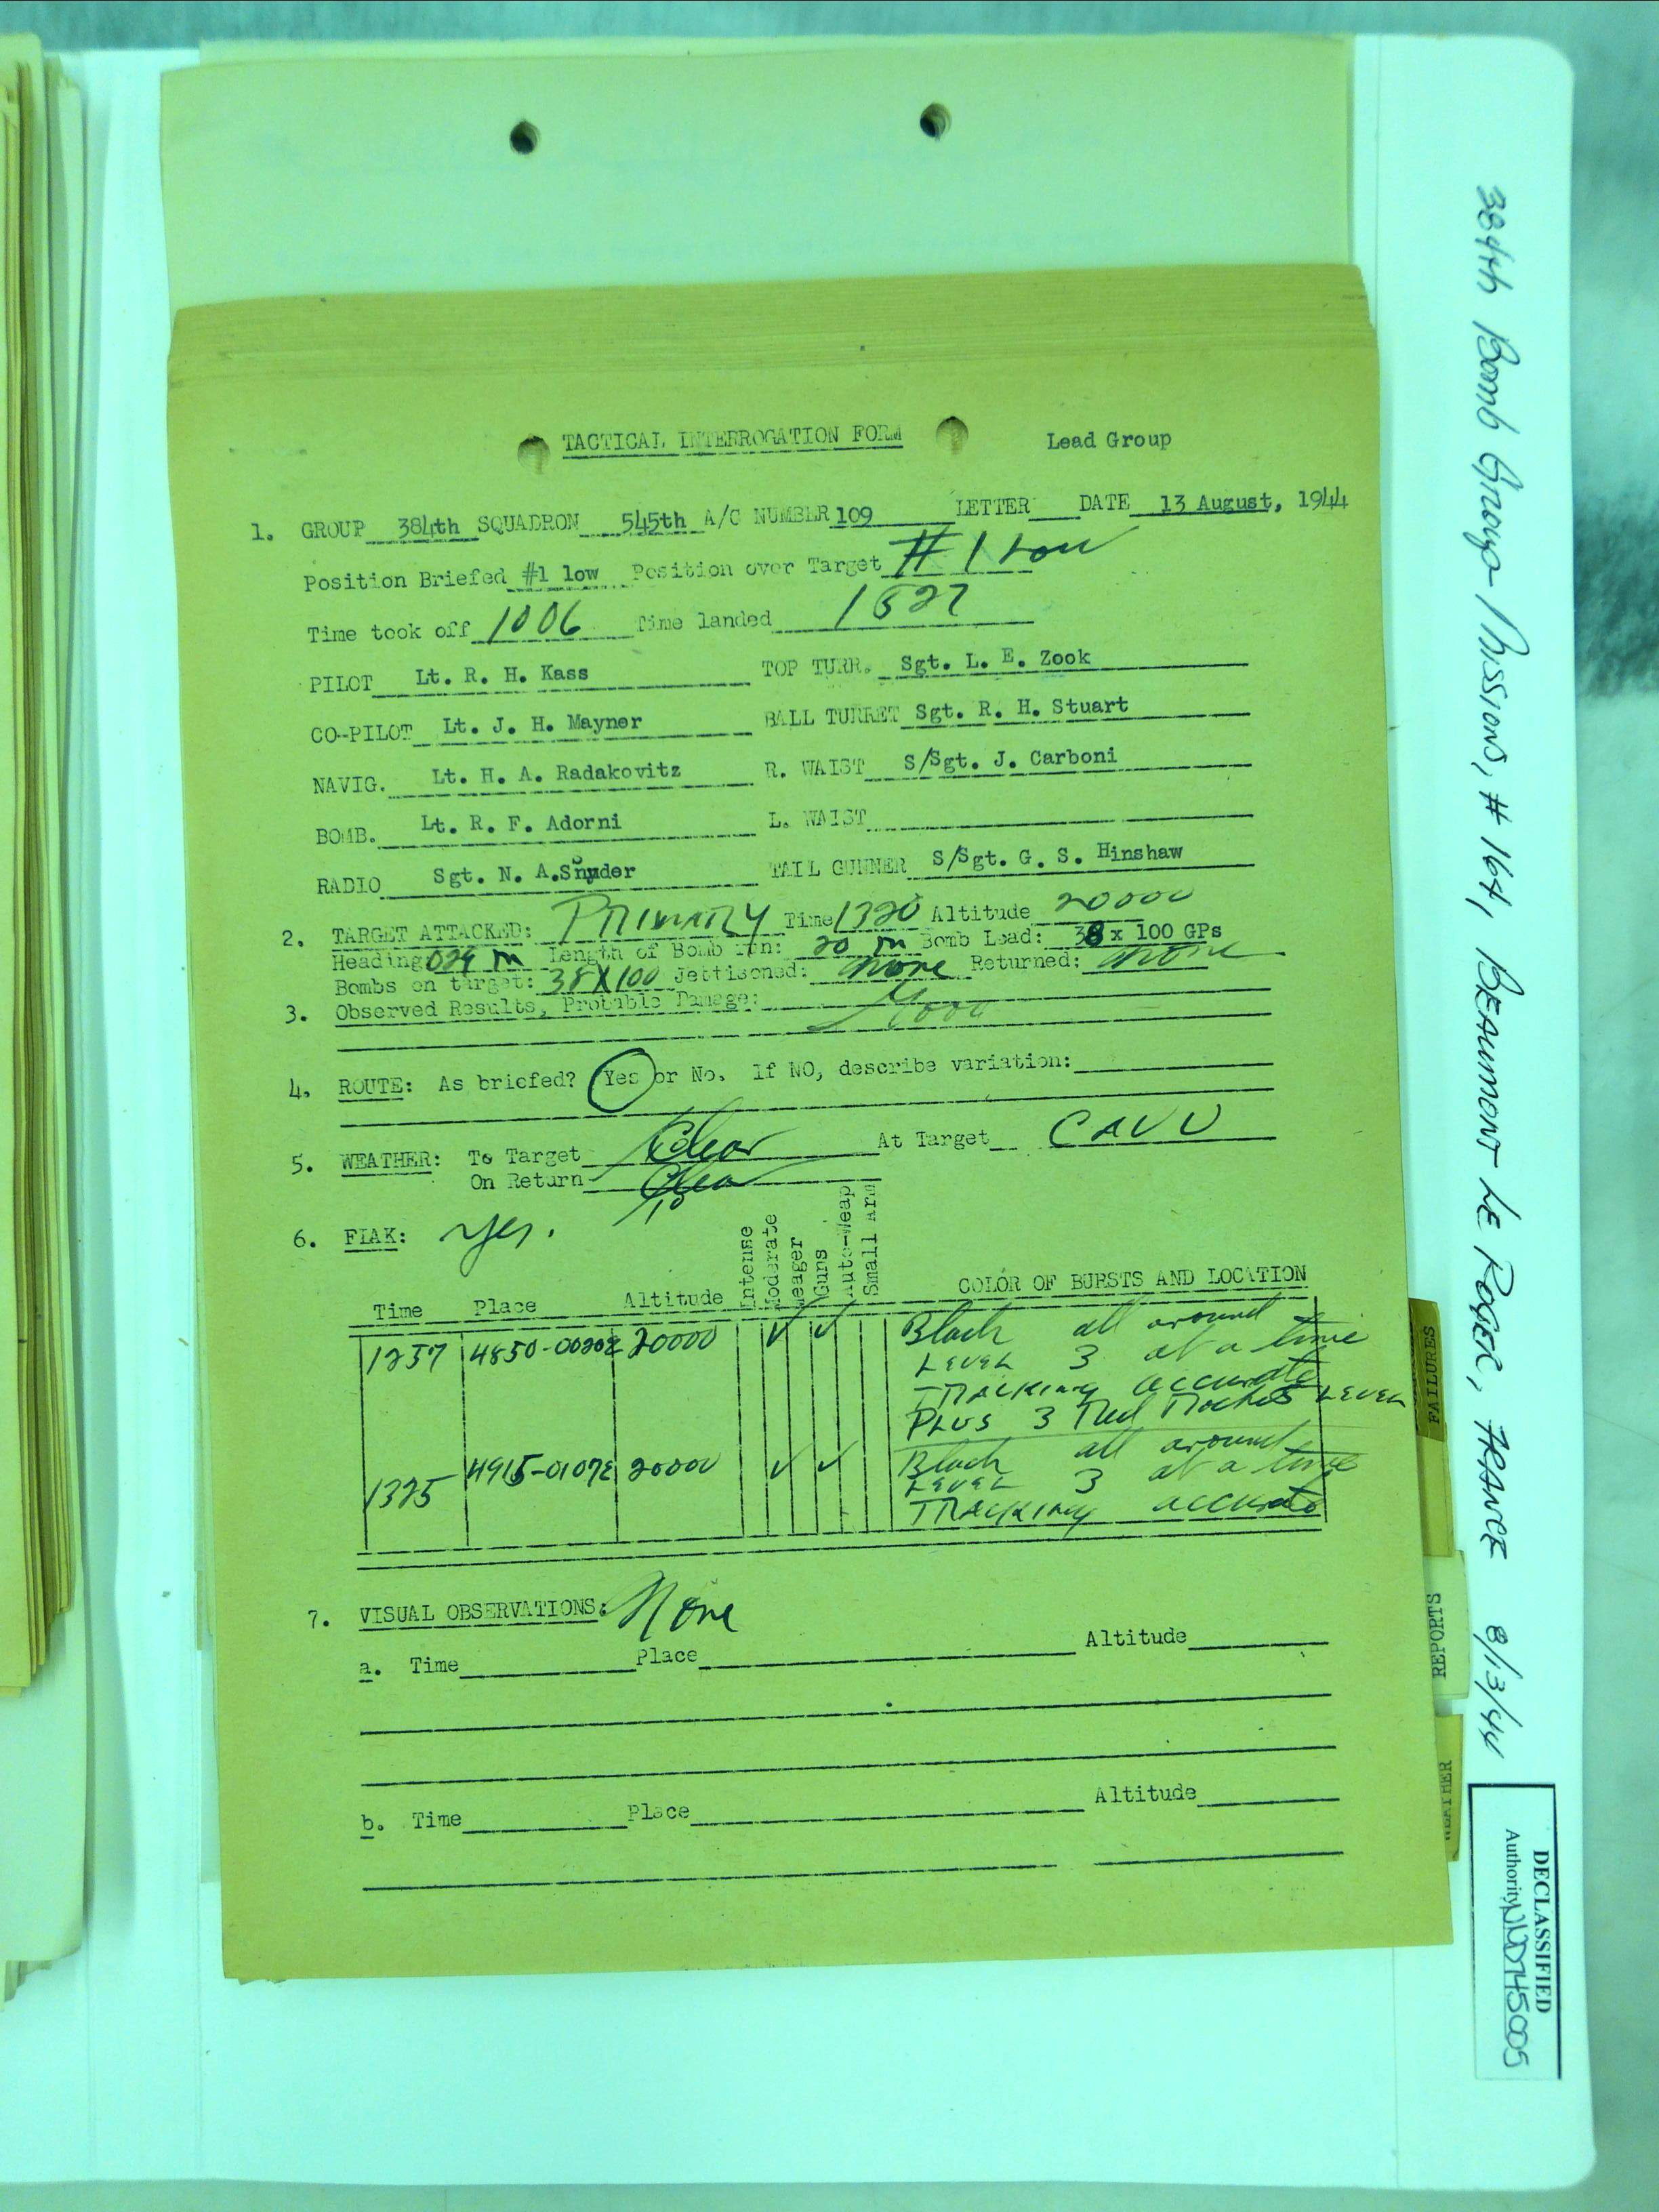 TACTICAL INTERROGATION FORM Lead Group
1. GROUP 384th SQUADRON 545th A/C NUMBER 109 LETTER DATE 13 August, 1944
Position Briefed #1 low Position over Target #1 Low
Time took off 1006 Time landed 1527
PILOT Lt. R. H. Kass TOP TURR. Sgt. L. E. Zook
CO-PILOT Lt. J. H. Mayner BALL TURRET Sgt. R. H. Stuart
NAVIG. Lt. H. A. Radakovitz R. WAIST S/Sgt. J. Carboni
BOMB. Lt. R. F. Adorni L. WAIST
RADIO Sgt. N. A. Snyder TAIL GUNNER S/Sgt. G. S. Hinshaw
2. TARGET ATTACKED: PRIMARY Time 1320 Altitude 20000
Heading: 024 m Length of Bomb run: 20 m Bomb Load: 38 x 100 GPs
Bombs on target: 38X100 Jettisoned: none Returned: none
3. Observed Results, Probable Damage: Good
4. ROUTE: As briefed? Yes or No. If NO, describe variation:
5. WEATHER: To Target Clear At Target CAVU
On Return Clear
6. FLAK: yes.
Time Place Altitude Intense Moderate Meager Guns Auto-Weap Small Arm COLOR OF BURSTS AND LOCATION
1257 4850-0020E 20000 ✓ ✓ Black all around
LEVEL 3 at a time
TRACKING accurate
PLUS 3 Red Rockets LEVEL
1325 4915-0107E 20000 ✓ ✓ Black all around
LEVEL 3 at a time
TRACKING accurate
7. VISUAL OBSERVATIONS: None
a. Time Place Altitude
b. Time Place Altitude
384th Bomb Group Missions, #164, BEAUMONT LE ROGER, FRANCE 8/13/44
FAILURES
REPORTS
WEATHER
DECLASSIFIED
Authority NND745005